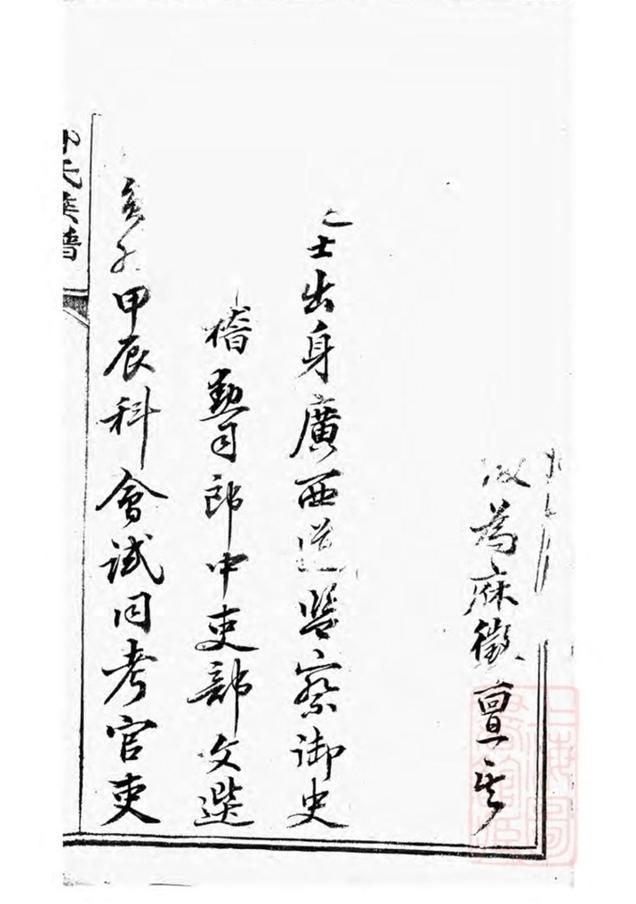 為麻徵亶
士出身廣西道監察御史
稽勳司郎中吏部文選
甲辰科會試同考官吏
氏族譜